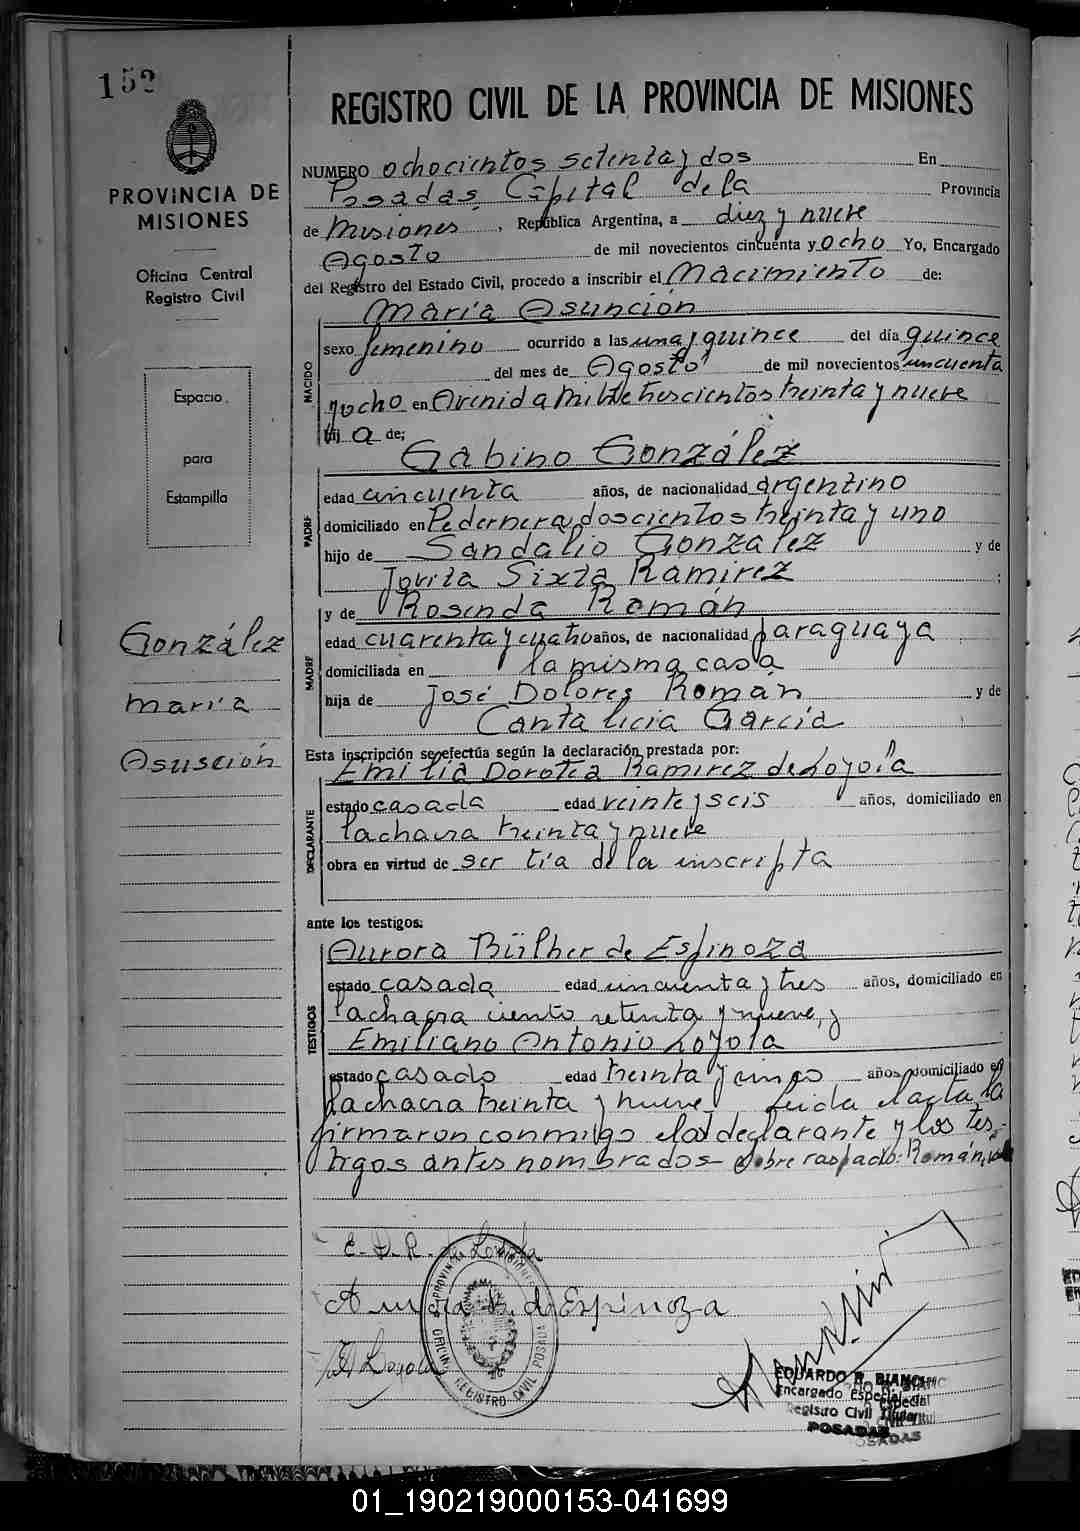 152
REGISTRO CIVIL DE LA PROVINCIA DE MISIONES
PROVINCIA DE
MISIONES
Oficina Central
Registro Civil
Espacio
para
Estampilla
González
maría
Asusción
NUMERO ochocientos setenta y dos En
Posadas Capital de la Provincia
de Misiones, República Argentina, a diez y nueve
Agosto de mil novecientos cincuenta y ocho Yo, Encargado
del Registro del Estado Civil, procedo a inscribir el Nacimiento de:
María Asunción
NACIDO
sexo femenino ocurrido a las una y quince del día quince
del mes de Agosto de mil novecientos cincuenta
y ocho en Avenida Mitre trescientos treinta y nueve
hij a de;
Gabino González
PADRE
edad cincuenta años, de nacionalidad argentino
domiciliado en Pedernera doscientos treinta y uno
hijo de Sandalio González y de
Jovita Sixta Ramirez ;
y de Rosenda Román
MADRE
edad cuarenta y cuatro años, de nacionalidad paraguaya
domiciliada en la misma casa
hija de José Dolores Román y de
Cantalicia García
Esta inscripción se efectúa según la declaración prestada por:
Emilia Dorotea Ramirez de Loyola
DECLARANTE
estado casada edad veinte y seis años, domiciliado en
la chacra treinta y nueve
obra en virtud de ser tía de la inscripta
ante los testigos:
TESTIGOS
Aurora Bülher de Espinoza
estado casada edad cincuenta y tres años, domiciliado en
la chacra ciento setenta y nueve, y
Emiliano Antonio Loyola
estado casado edad treinta y cinco años domiciliado en
la chacra treinta y nueve Leida el acta la
firmaron conmigo el declarante y los tes-
tigos antes nombrados - sobre raspado: Román,
E. D. R. de Loyola
Aurora B. de Espinoza
E A Loyola
PROVINCIA MISIONES
OFICINA REGISTRO CIVIL POSADAS
EDUARDO R. BIANCHI
Encargado Especial
Registro Civil Titular
POSADAS
01_190219000153-041699